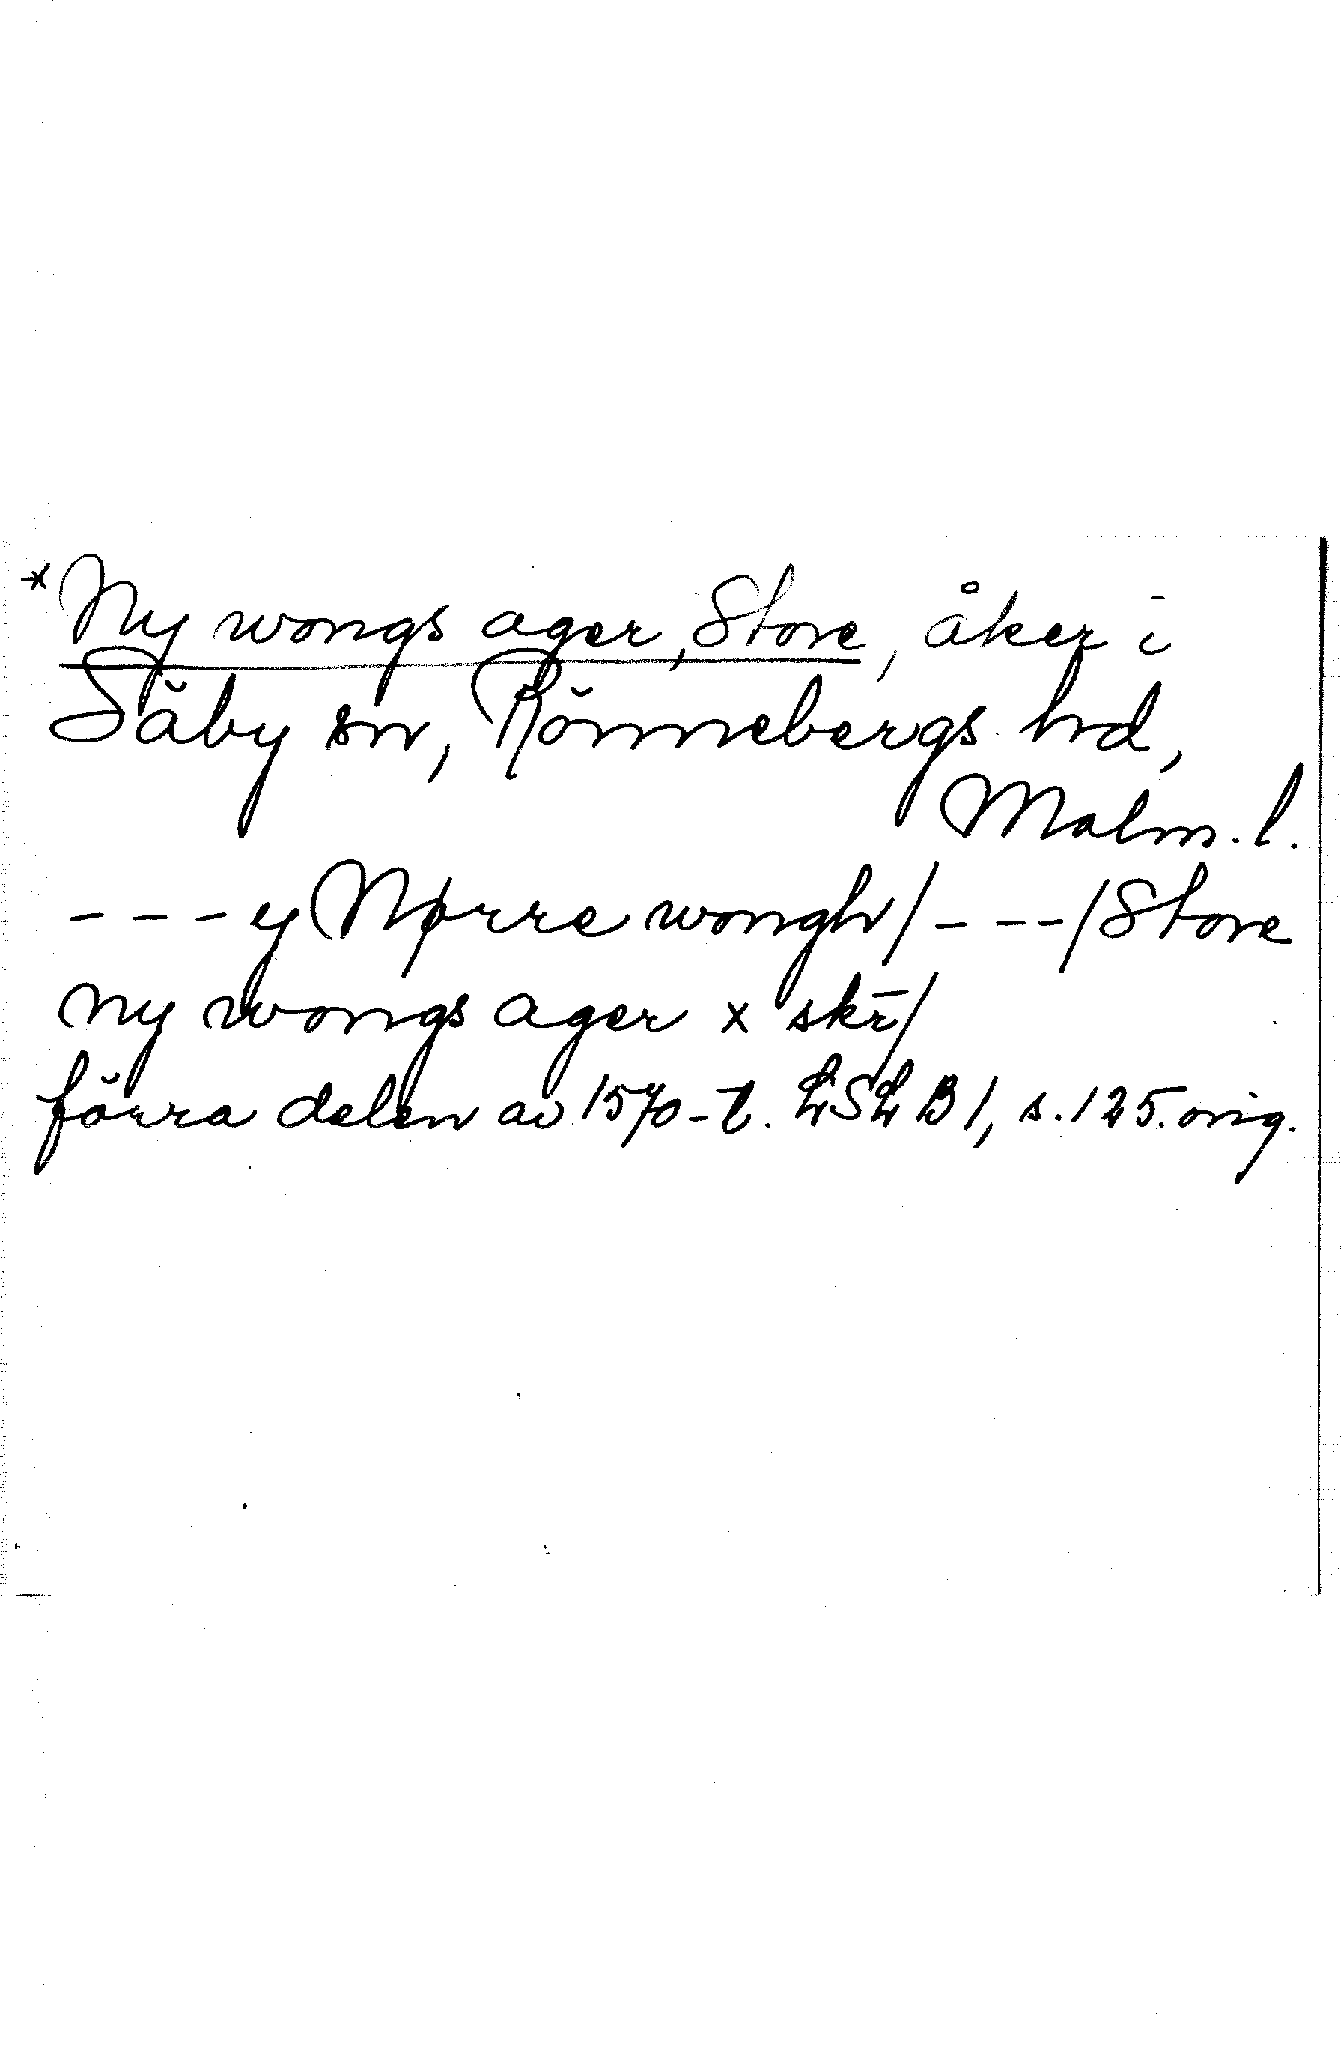 *Ny wongs ager, Store, åker i
Säby sn, Rönnebergs hd,
Malm. l.
- - - ej Nørre wongh/ - - - / Store
ny wongs ager x skr̄/
förra delen av 1570-t. LSL B 1, s. 125. orig.